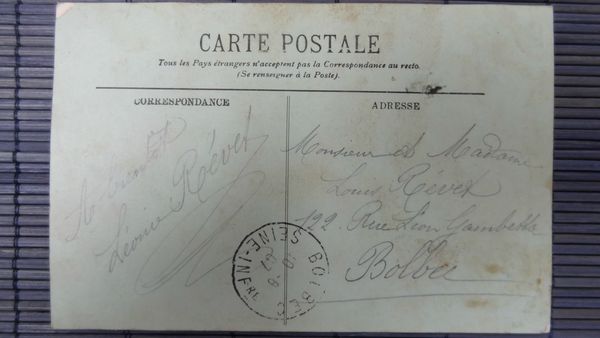 CARTE POSTALE
Tous les Pays étrangers n'acceptent pas la Correspondance au recto.
(Se renseigner à la Poste).
CORRESPONDANCE
A bientôt
Léonie Révet
ADRESSE
Monsieur et Madame
Louis Révet
122 Rue Léon Gambetta
Bolbec
BOLBEC
SEINE-INFRE